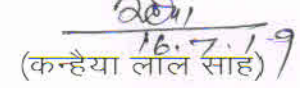 16.7.19
(कन्हैया लाल साह)